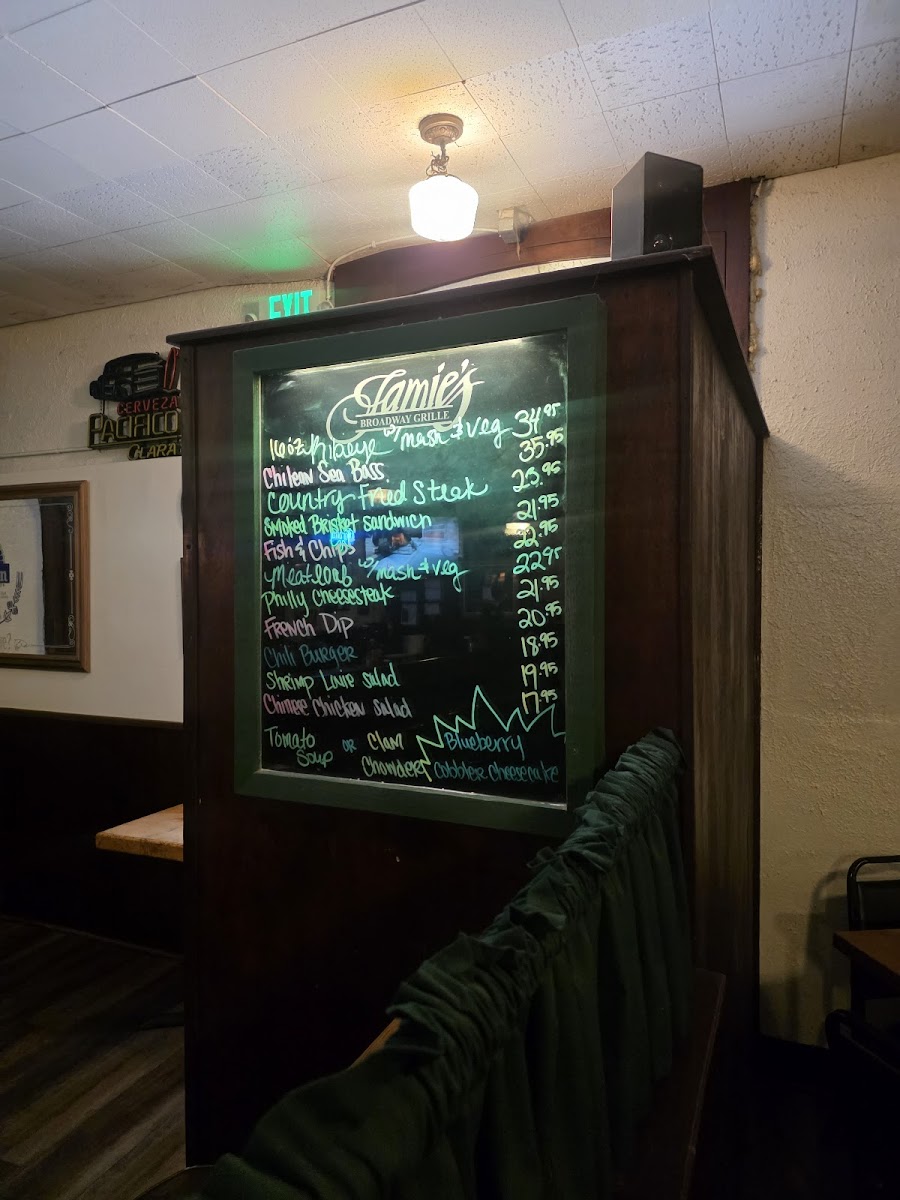 EXIT
CERVEZA
PACIFICO
CLARA
Jamie's
BROADWAY GRILLE
16oz Ribeye w/mash & veg 34.95
Chilean Sea Bass 35.95
Country Fried Steak 23.95
Smoked Brisket Sandwich 21.95
Fish & Chips 22.95
Meatloaf w/mash & veg 22.95
Philly Cheesesteak 21.95
French Dip 20.95
Chili Burger 18.95
Shrimp Louie Salad 19.95
Chinese Chicken Salad 17.95
Tomato Soup or Clam Chowder
Blueberry
Cobbler Cheesecake